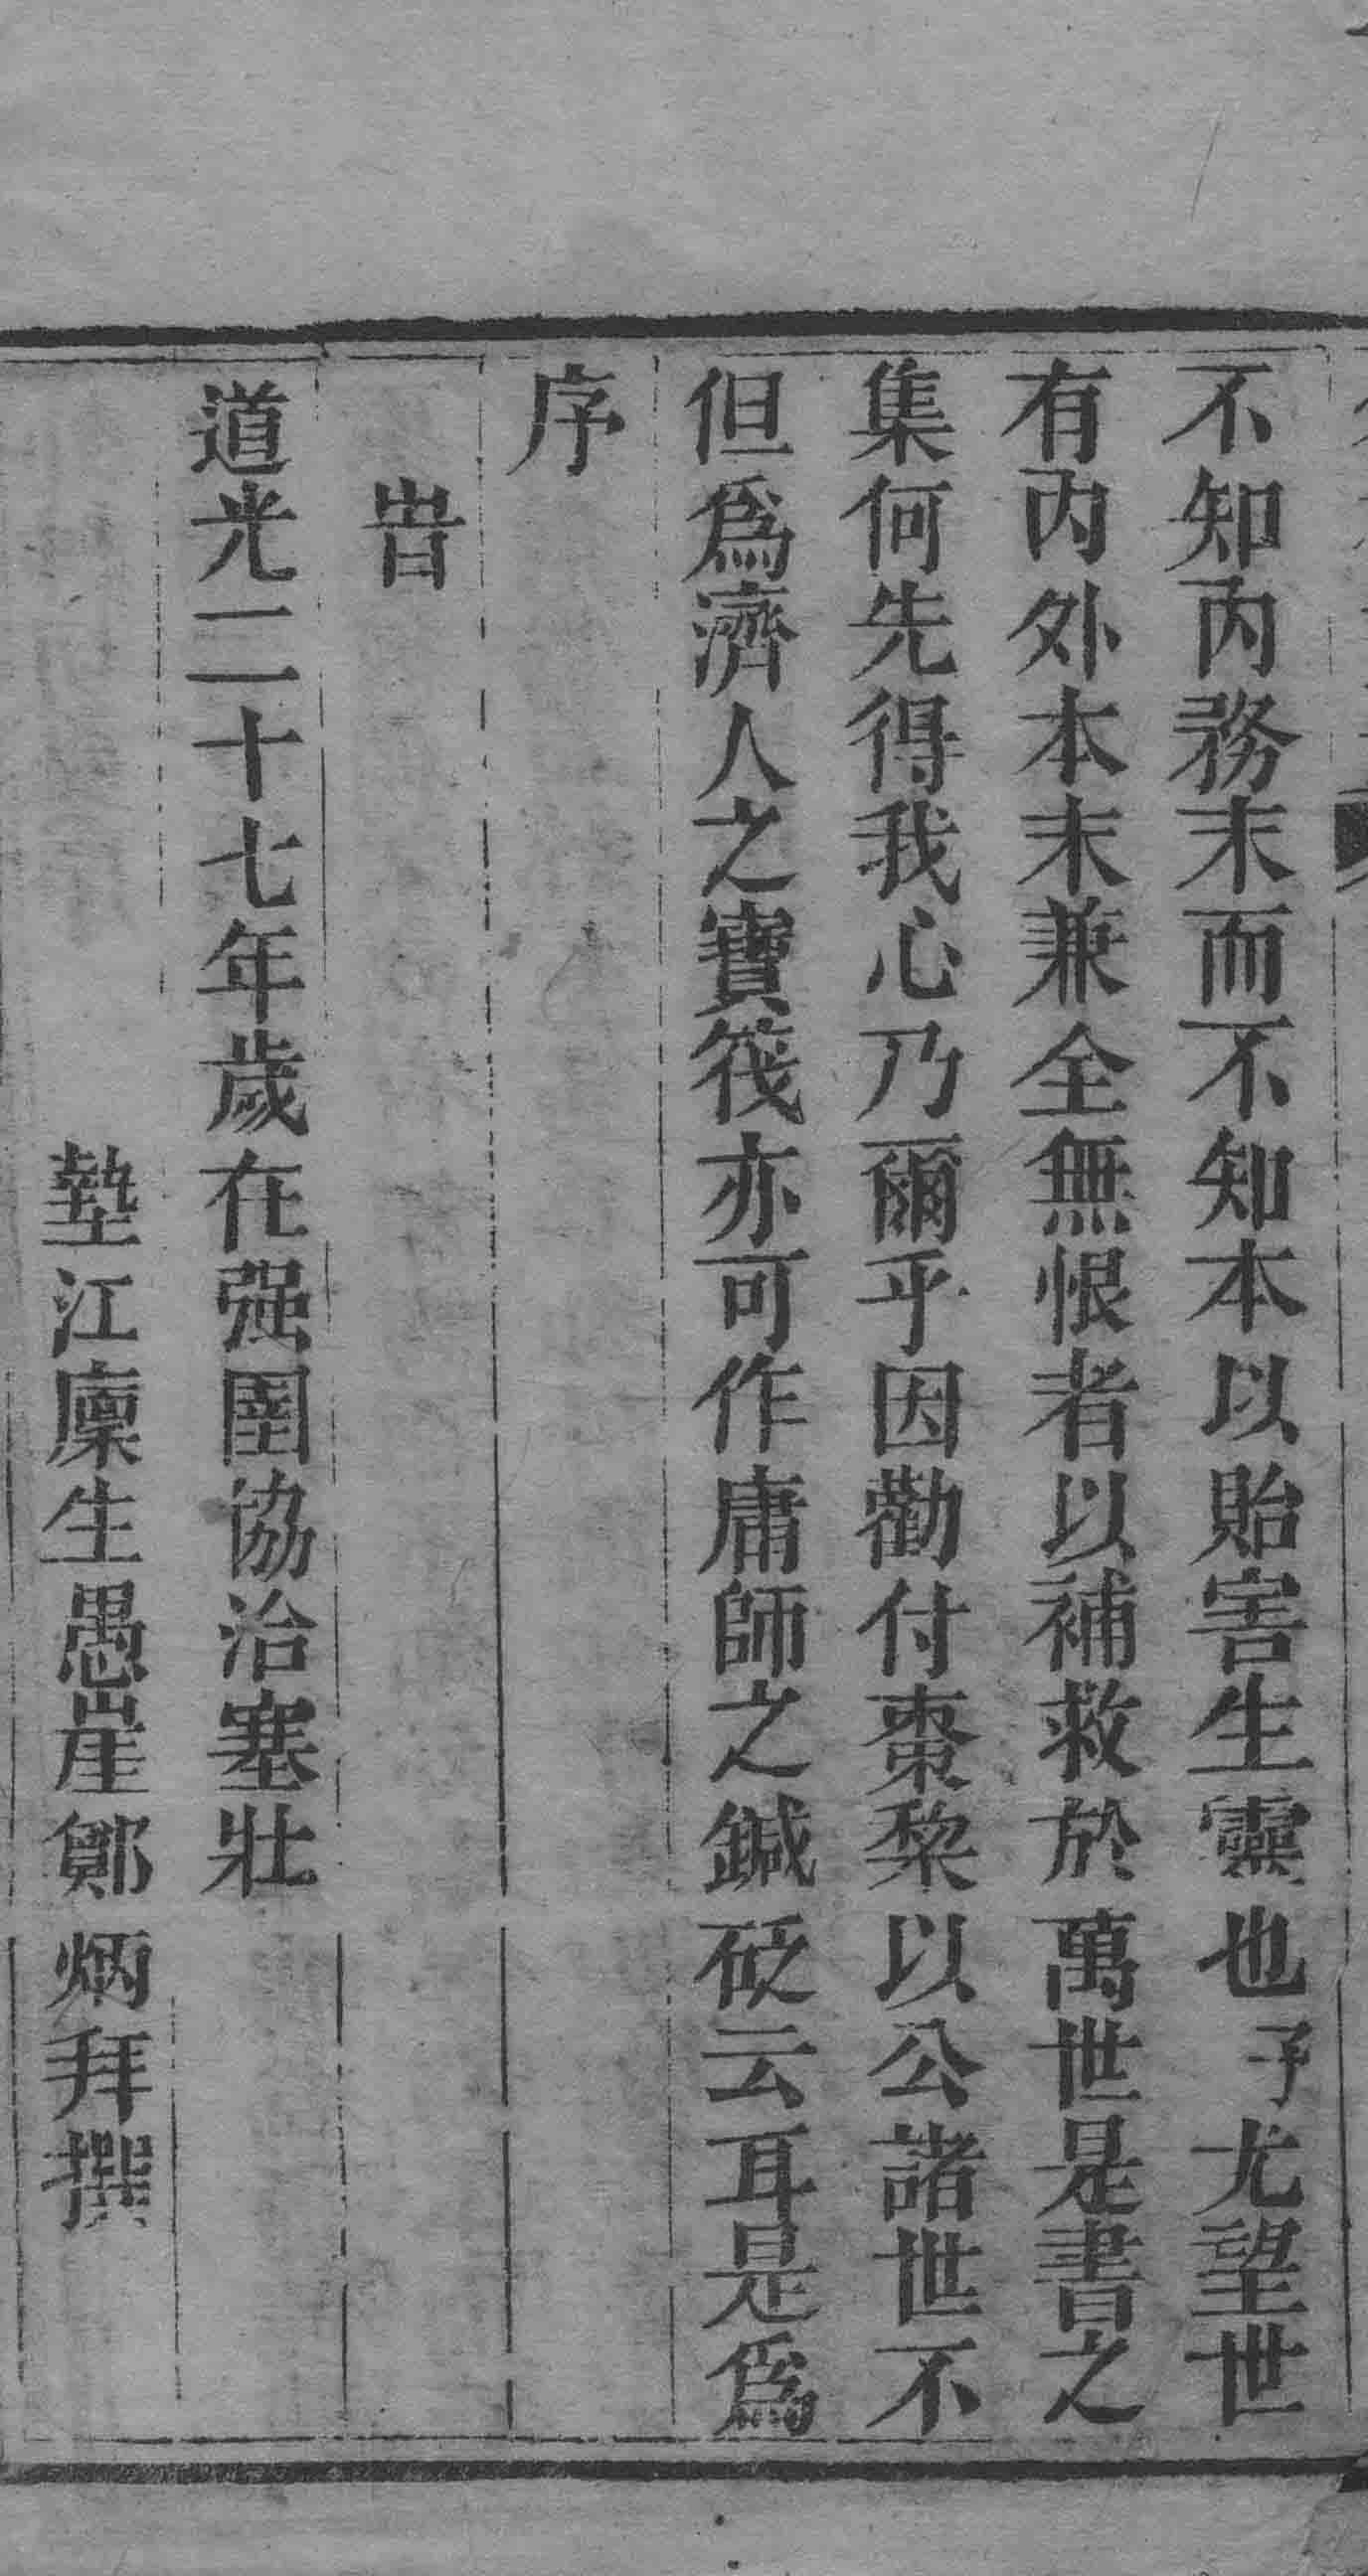 不知內務末而不知本以貽害生靈也予尤望世
有內外本末兼全無恨者以補救於萬世是書之
集何先得我心乃爾乎因勸付棗棃以公諸世不
但爲濟人之寶筏亦可作庸師之鍼砭云耳是爲
序
旹
道光二十七年歲在强圉協洽塞壯
墊江廩生愚崖鄭炳拜撰